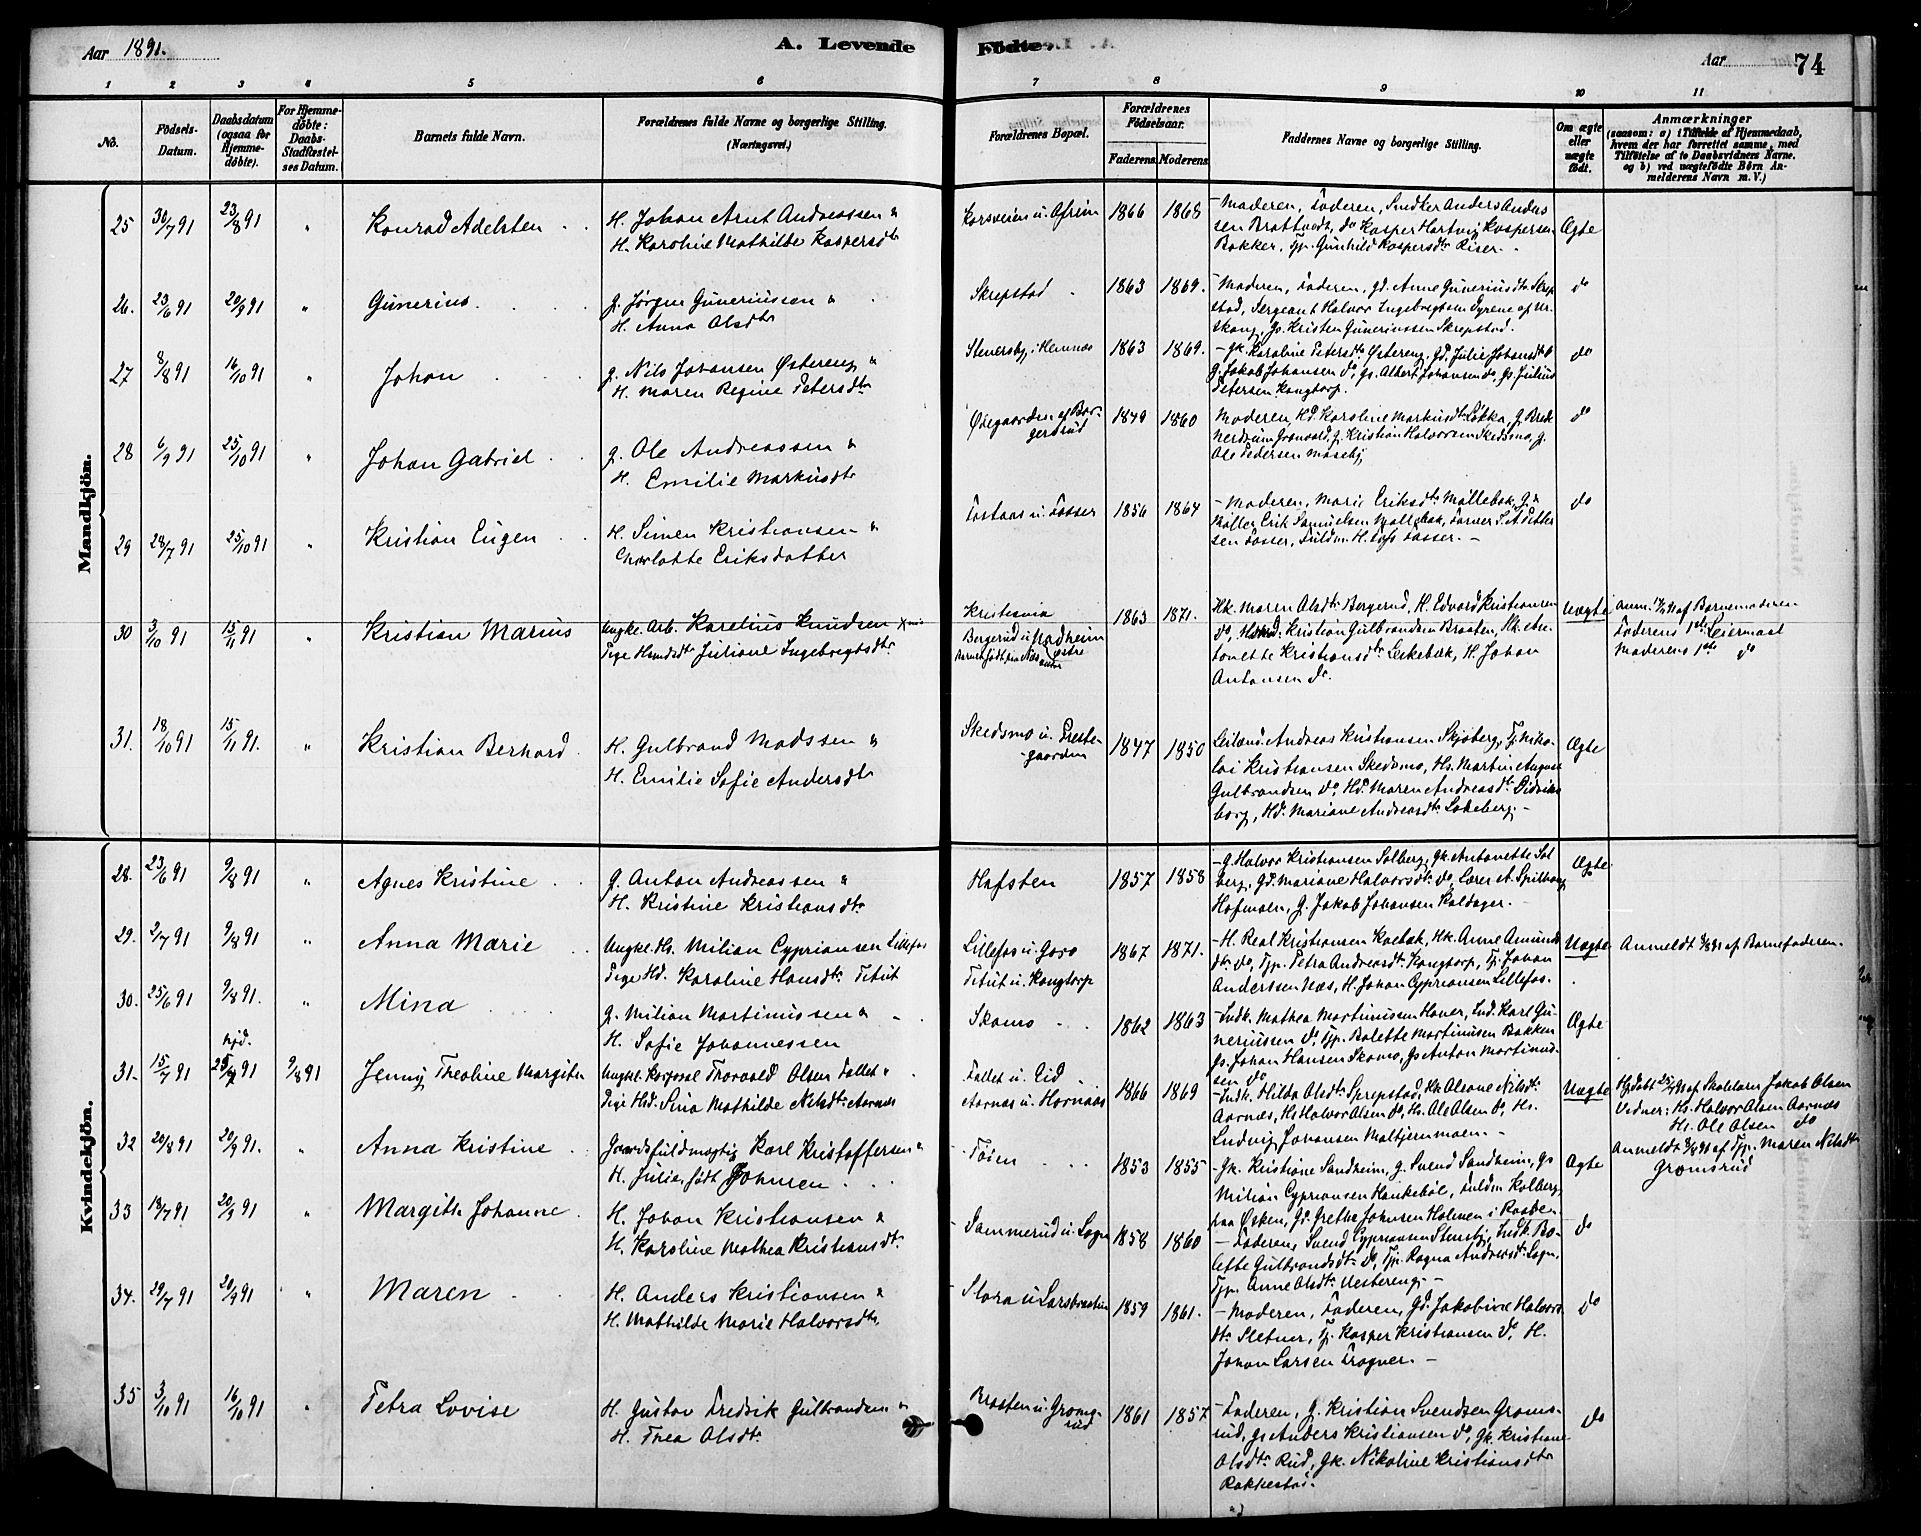 Aar 1891.
A. Levende
Fødte.
Aar
74
1 2 3 4 5 6 7 8 9 10 11
No.
Födsels-
Datum.
Daabsdatum
(ogsaa for
Hjemme-
döbte).
For Hjemme-
döbte:
Daabs-
Stadfæstel-
ses Datum.
Barnets fulde Navn.
Forældrenes fulde Navne og borgerlige Stilling.
(Næringsvei.)
Forældrenes Bopæl.
Forældrenes
Födselsaar.
Faderens. Moderens.
Faddernes Navne og borgerlige Stilling.
Om ægte
eller
uægte
födt.
Anmærkninger
(saasom: a) i Tilfælde af Hjemmedaab,
hvem der har forrettet samme, med
Tilföielse af to Daabsvidners Navne,
og b) ved uægtefödte Börn An-
melderens Navn m. V.)
Mandkjön.
25 30/7 91 23/8 91 " Konrad Adelsten
H. Johan Arnt Andreassen &
H. Karoline Mathilde Kaspersdtr
1866 1868
- Moderen, Faderen, Snedker Anders Anders
sen Brattvedt, do Kasper Hartvig Kaspersen
Bakker, Tp. Gunhild Kaspersdtr Riser. -
Ægte
26. 23/6 91 20/9 91 " Gunerius
g. Jørgen Guneriussen &
H. Anna Olsdtr
Skrepstad
1863 1869.
- Moderen, Faderen, gd. Anne Guneriusdtr Skrep
stad, Sergeant Halvor Ingebregtsen Dyrene af Ur-
skoug, gs. Kristen Guneriussen Skrepstad.
do
27 8/8 91 16/10 91 " Johan
g. Nils Johansen Østereng &
H. Maren Regine Petersdtr
Stenersby i Hemnæs
1863 1869.
- gk. Karoline Petersdtr Østereng, gd. Julie Johansdtr
g. Jakob Johansen do, gs. Albert Johansen do, gs. Julius
Petersen Kangtorp.
do
28 6/9 91 25/10 91 " Johan Gabriel
g. Ole Andreassen &
H. Emilie Markusdtr
Øvegaarden af Bor-
gersrud
1849 1860
Moderen, Hd. Karoline Markusdtr Løkka, g. Brede
g. Kristian Halvorsen Skedsmo, g.
Ole Pedersen Moseby
do
29 28/7 91 25/10 91 " Kristian Eugen
H. Simen Kristiansen &
Charlotte Eriksdatter
u. Fosser
1856 1864
- Moderen, Marie Eriksdtr Møllebak, g. &
Møller Erik Samuelsen Møllebak, Farver S. A. Petter
sen Fosser, Fuldm. H. Fosser. -
do
30 3/10 91 15/11 91 " Kristian Marius
Ungk. Arb. Karelius Knudsen
Pige Hmdsdtr Juliane Ingebregtsdtr
Kristiania
Bergerud u. Nadheim
1863 1871.
Hk. Maren Olsdtr Bergerud, H. Edvard Kristiansen
do, Kristian Gulbrandsen Braaten, Hk. An-
tonette Kristiansdtr Leikebæk, H. Johan
Antonsen do.
Uægte
Anm. af Barnemoderen
Faderens 1ste Leiermaal
Moderens 1ste do
31. 18/10 91 15/11 91. " Kristian Berhard
H. Gulbrand Madssen &
H. Emilie Sofie Andersdtr
Skedsmo u. Preste-
gaarden
1847 1850
Leilænd. Andreas Kristiansen Skjøberg, Tj. Niko-
lai Kristiansen Skedsmo, Hs. Martin August
Gulbrandsen do, Hd. Maren Andreasdtr Didriks
borg, Hd. Mariane Andreasdtr Lokeberg. -
Ægte
Kvindekjön.
28. 23/6 91 9/8 91 " Agnes Kristine
g. Anton Andreassen &
H. Kristine Kristiansdtr
Hafsten
1857 1858
- g. Halvor Kristiansen Solberg, gk. Antonette Sol
berg, gd. Mariane Halvorsdtr do, Lærer A. Spilhaug
Hofmoen, g. Jakob Johansen Kaldager. -
Ægte
29. 2/7 91 9/8 91 " Anna Marie
Ungk. Hs. Milian Cypriansen Lillefos
Pige Hd. Karoline Hansdtr Titut
Lillefos u. Goro
Titut u. Kangtorp
1867 1871.
- H. Real Kristiansen Koebæk, Hk. Anne Amunds
dtr do, Tp. Petra Andreasdtr Kangtorp, Tj. Johan
Anderssen Næs, H. Johan Cypriansen Lillefos.
Uægte
Anmeldt 9/8 91 af Barnefaderen.
30. 25/6 91 9/8 91. " Mina
g. Milian Martinussen &
H. Sofie Johannessen
Skamo
1862 1863
- Indk. Mathea Martinusen Haver, Ind. Karl Gu-
neriussen do, Tp. Bolette Martinusen Bakken
gs. Johan Hansen Skamo, gs. Anton Martinus-
sen do
Ægte
31. 15/7 91 hjd. 25/7 91 9/8 91 Jenny Theoline Margith
Ungk. Korporal Thorvald Olsen Fallet &
Pige Hd. Sina Mathilde Nilsdtr Aarnæs
Fallet u. Eid
Aarnæs u. Hornaas
1866 1869
- Indk. Hilda Olsdtr Skrepstad, Hk. Olrane Nilsdtr
Aarnæs, Hs. Halvor Olsen do, Hs. Ole Olsen do, Hs.
Ludvig Johansen Maltjernmoen. -
Uægte
Hjdøbt 25/7 91 af Skolelær. Jakob Olsen
Vidner: Hs. Halvor Olsen Aarnæs
Hs. Ole Olsen do
Anmeldt 9/8 91 af Tp. Maren Nilsdtr
Gromsrud
32 20/8 91 20/9 91. " Anna Kristine
Gaardsfuldmægtig Karl Kristoffersen &
H. Julie, født Johnsen
- Føien
1853 1855
- Gk. Kristiane Sandheim, g. Svend Sandheim, gs.
Milian Cypriansen Haukebøl, Fuldm. Kolberg
paa Øsken, Gd. Grethe Johnsen Holmen i Raaden
Ægte
33 19/7 91 20/9 91 " Margith Johanne
H. Johan Kristiansen &
H. Karoline Mathea Kristiansdtr
- Sammerud u. Logn
1858 1860
- Faderen, Svend Cypriansen Stensby, Indk. Bo-
lette Gulbrandsdtr do, Tp. Ragna Andersdtr Logn,
Tp. Anne Olsdtr Vestereng. -
do
34. 29/7 91 20/9 91 " Maren
H. Anders Kristiansen &
H. Mathilde Marie Halvorsdtr
- Slora u. Larsbraaten
1859 1861.
- Moderen, Faderen, Gd. Jakobine Halvors
dtr Sletner, Tj. Kasper Kristiansen do, H.
Johan Larsen Fragner. -
do
35 3/10 91 16/10 91 " Petra Lovise
H. Gustav Fredrik Gulbrandsen &
H. Thea Olsdtr
Braaten u. Groms-
rud
1861 1857
- Faderen, g. Kristian Svendsen Groms-
rud, gs. Anders Kristiansen do, Gk. Kristiane
Olsdtr Rud, Gk. Nikoline Kristiansdtr
Rakkestad.
do